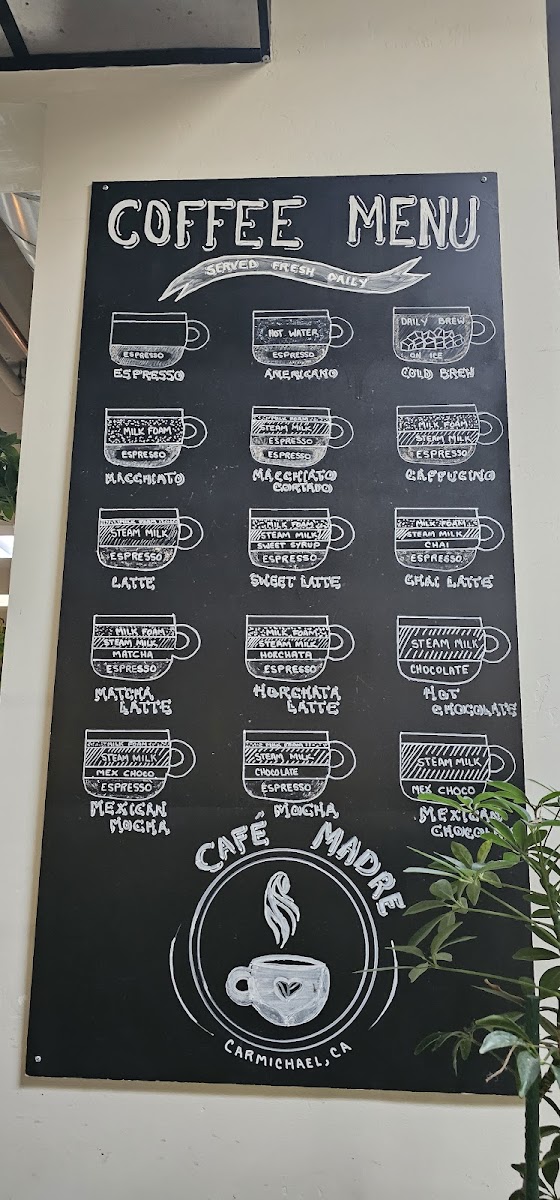 COFFEE MENU
SERVED FRESH DAILY
ESPRESSO
ESPRESSO
HOT WATER
ESPRESSO
AMERICANO
DAILY BREW
ON ICE
COLD BREW
MILK FOAM
ESPRESSO
MACCHIATO
MILK FOAM
STEAM MILK
ESPRESSO
ESPRESSO
MACCHIATO
CORTADO
MILK FOAM
STEAM MILK
ESPRESSO
CAPPUCINO
MILK FOAM
STEAM MILK
ESPRESSO
LATTE
MILK FOAM
STEAM MILK
SWEET SYRUP
ESPRESSO
SWEET LATTE
MILK FOAM
STEAM MILK
CHAI
ESPRESSO
CHAI LATTE
MILK FOAM
STEAM MILK
MATCHA
ESPRESSO
MATCHA
LATTE
MILK FOAM
STEAM MILK
HORCHATA
ESPRESSO
HORCHATA
LATTE
STEAM MILK
CHOCOLATE
HOT
CHOCOLATE
MILK FOAM
STEAM MILK
MEX CHOCO
ESPRESSO
MEXICAN
MOCHA
MILK FOAM
STEAM MILK
CHOCOLATE
ESPRESSO
MOCHA
STEAM MILK
MEX CHOCO
MEXICAN
CAFÉ MADRE
CARMICHAEL, CA